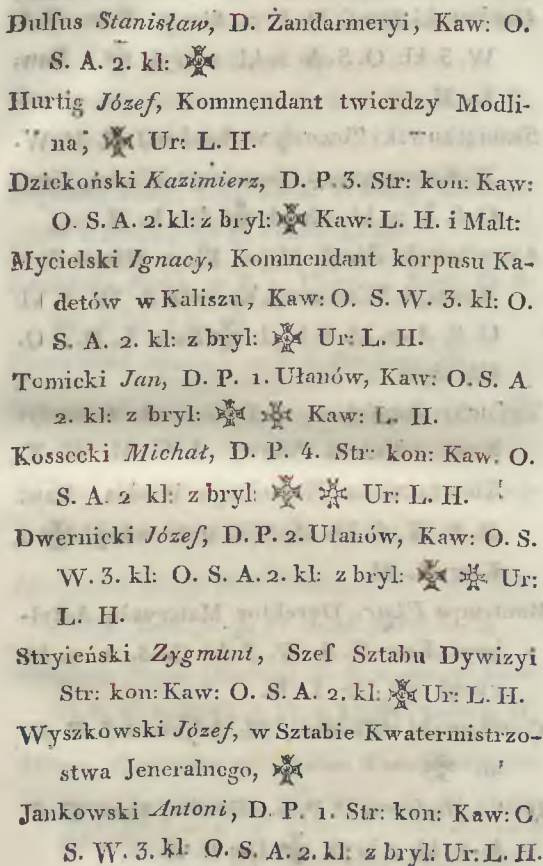 Dulfus Stanisław, D. Żandarmeryi, Kaw: O.
S. A. 2. kl:
Hurtig Józef, Kommendant twierdzy Modli-
na, Ur: L. H.
Dziekoński Kazimierz, D. P. 3. Str: kon: Kaw:
O. S. A. 2. kl: z bryl: Kaw: L. H. i Malt:
Mycielski Ignacy, Kommendant korpusu Ka-
detów w Kaliszu, Kaw: O. S. W. 3. kl: O.
S. A. 2. kl: z bryl: Ur: L. H.
Tomicki Jan, D. P. 1. Ułanów, Kaw: O. S. A
2. kl: z bryl: Kaw: L. H.
Kossecki Michał, D. P. 4. Str: kon: Kaw. O.
S. A. 2 kl: z bryl: Ur: L. H.
Dwernicki Józef, D. P. 2. Ułanów, Kaw: O. S.
W. 3. kl: O. S. A. 2. kl: z bryl: Ur:
L. H.
Stryieński Zygmunt, Szef Sztabu Dywizyi
Str: kon: Kaw: O. S. A. 2. kl: Ur: L. H.
Wyszkowski Józef, w Sztabie Kwatermistrzo-
stwa Jeneralnego,
Jankowski Antoni, D. P. 1. Str: kon: Kaw: O
S. W. 3. kl: O. S. A. 2. kl: z bryl: Ur: L. H.